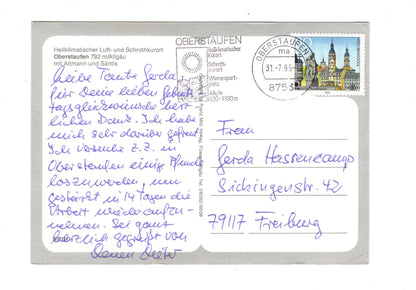 Heilklimatischer Luft- und Schrothkurort
Oberstaufen 792 m/Allgäu
mit Altmann und Säntis
Liebe Tante Gerda,
für Deine lieben Geburts-
tagsglückwünsche herz-
lichen Dank. Ich habe
mich sehr darüber gefreut.
Ich versuche z. Z. in
Oberstaufen einige Pfunde
loszuwerden, um
gestärkt in 14 Tagen die
Arbeit wieder aufzu-
nehmen. Sei ganz
herzlich gegrüßt von
Deinem Dieter
OBERSTAUFEN
Heilklimatischer
Kurort
Schroth-
kurort
Wintersport-
platz
Allgäu
OBERSTAUFEN
ma
31.-7.95
8753
Frau
Gerda Hassencamp
Sickingenstr. 42
79117 Freiburg